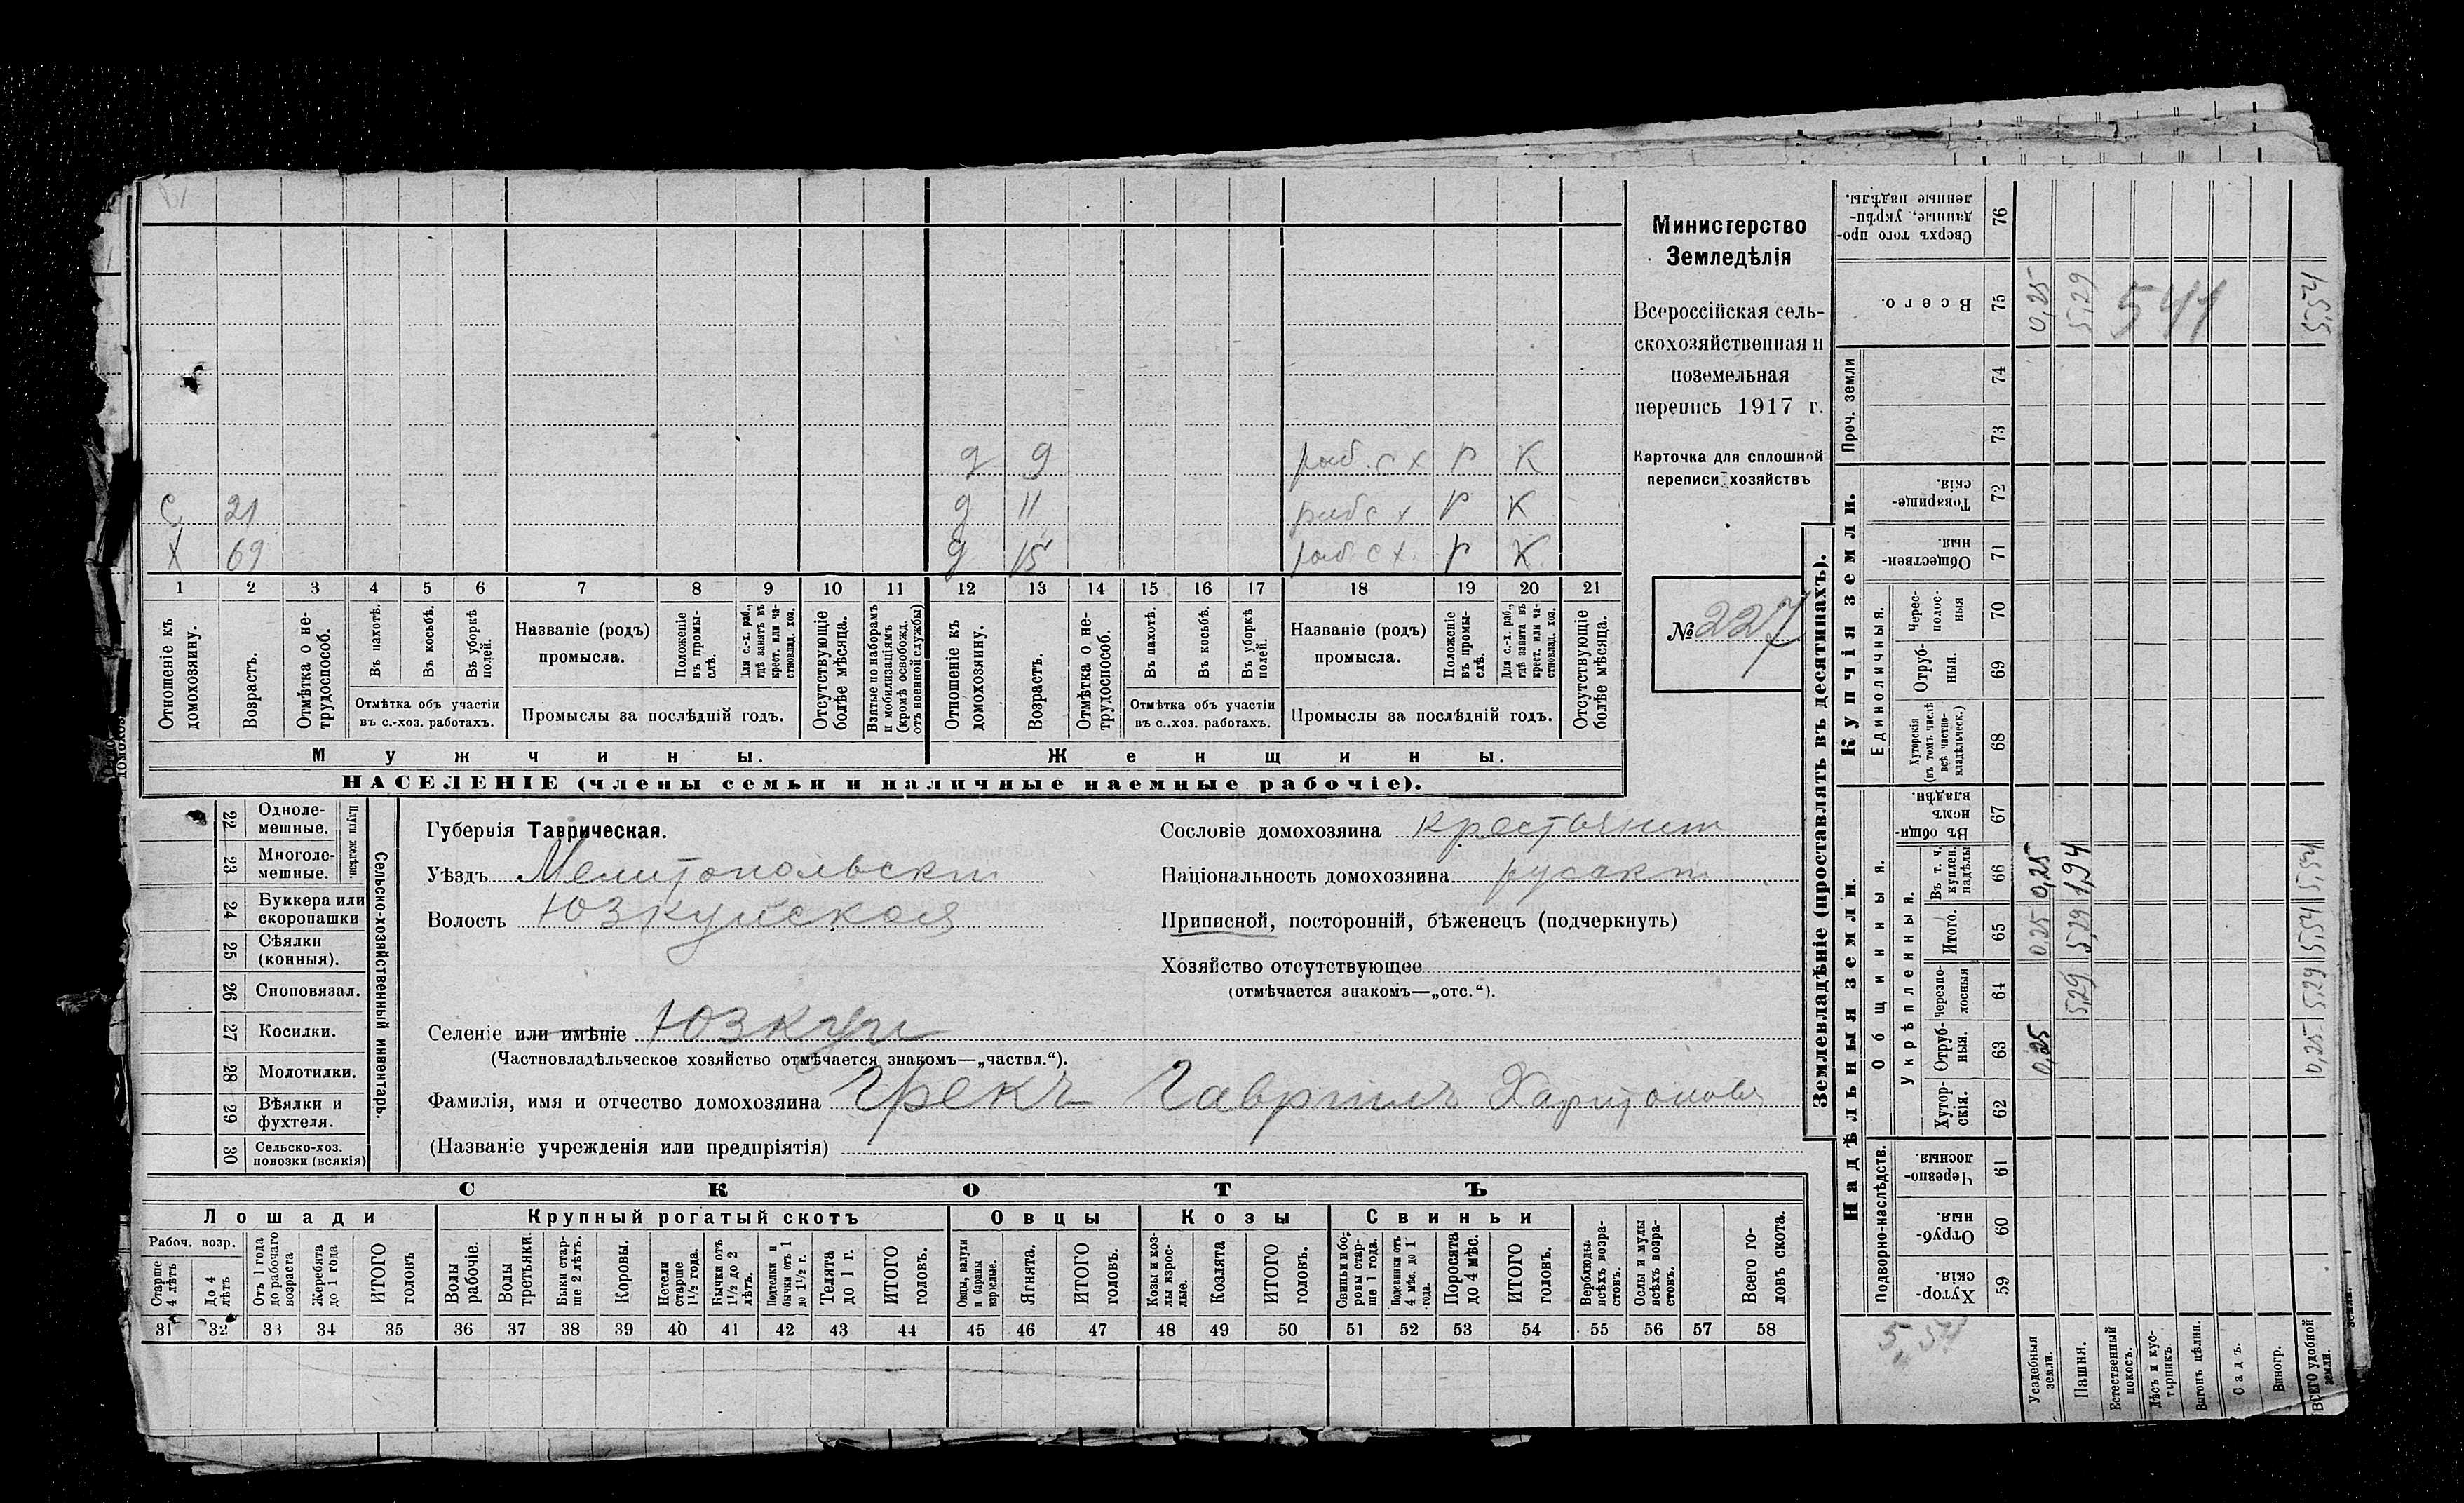 с 21
х 69
д 9 раб. с х р к
д 11 раб с х р к
д 15 раб. с х. р к
1 2 3 4 5 6 7 8 9 10 11 12 13 14 15 16 17 18 19 20 21
Отношеніе къ домохозяину.
Возрастъ.
Отмѣтка о не-
трудоспособ.
Въ пахотѣ.
Въ косьбѣ.
Въ уборкѣ полей.
Отмѣтка объ участіи
въ с.-хоз. работахъ.
Названіе (родъ)
промысла.
Положеніе въ промы-
слѣ.
Для с.-х. раб.,
гдѣ занятъ въ
крест. или ча-
стновлад. хоз.
Промыслы за послѣдній годъ.
Отсутствующіе
болѣе мѣсяца.
Взятые по наборамъ
и мобилизаціямъ
(кромѣ освобожд.
отъ военной службы)
Отношеніе къ
домохозяину.
Возрастъ.
Отмѣтка о не-
трудоспособ.
Въ пахотѣ.
Въ косьбѣ.
Въ уборкѣ полей.
Отмѣтка объ участіи
въ с.-хоз. работахъ.
Названіе (родъ)
промысла.
Положеніе
въ промы-
слѣ.
Для с.-х. раб.,
гдѣ занята въ
крест. или ча-
стновлад. хоз.
Промыслы за послѣдній годъ.
Отсутствующіе
болѣе мѣсяца.
Мужчины.
Женщины.
НАСЕЛЕНІЕ (члены семьи и наличные наемные рабочіе).
Министерство
Земледѣлія
Всероссійская сель-
скохозяйственная и
поземельная
перепись 1917 г.
Карточка для сплошной
переписи хозяйствъ
№ 227
22 Одноле-
мешные.
23 Многоле-
мешные.
Плуги желѣзн.
24 Буккера или
скоропашки
25 Сѣялки
(конныя).
26 Сноповязал.
27 Косилки.
28 Молотилки.
29 Вѣялки и
фухтеля.
30 Сельско-хоз.
повозки (всякія)
Сельско-хозяйственный инвентарь.
Губернія Таврическая.
Уѣздъ Мелитопольскій
Волость Юзкуйская
Селеніе или имѣніе Юзкуи
(Частновладѣльческое хозяйство отмѣчается знакомъ—„частвл.“).
Фамилія, имя и отчество домохозяина Грекъ Гавриилъ Харитоновъ
(Названіе учрежденія или предпріятія)
Сословіе домохозяина крестьянинъ
Національность домохозяина русскій
Приписной, посторонній, бѣженецъ (подчеркнуть)
Хозяйство отсутствующее
(отмѣчается знакомъ—„отс.“).
СКОТЪ
Лошади
Рабоч. возр.
Старше
4 лѣтъ
До 4
лѣтъ
Отъ 1 года
до рабочаго
возраста
Жеребята
до 1 года
ИТОГО
головъ
Крупный рогатый скотъ
Волы
рабочіе.
Волы
третьяки.
Быки стар-
ше 2 лѣтъ.
Коровы.
Нетели
старше
1½ года.
Бычки отъ
1½ до 2
лѣтъ.
Подтелки и
бычки отъ 1
до 1½ г.
Телята
до 1 г.
ИТОГО
головъ.
Овцы
Овцы, валухи
и бараны
взрослые.
Ягнята.
ИТОГО
головъ.
Козы
Козы и коз-
лы взрос-
лые.
Козлята
ИТОГО
головъ.
Свиньи
Свиньи и бо-
ровы стар-
ше 1 года.
Подсвинки отъ
4 мѣс. до 1
года.
Поросята
до 4 мѣс.
ИТОГО
головъ.
Верблюды
всѣхъ возра-
стовъ.
Ослы и мулы
всѣхъ возра-
стовъ.
Всего го-
ловъ скота.
31 32 33 34 35 36 37 38 39 40 41 42 43 44 45 46 47 48 49 50 51 52 53 54 55 56 57 58
Землевладѣніе (проставлять въ десятинахъ).
Надѣльныя земли.
Купчія земли.
Проч. земли
Подворно-наслѣдств.
Общинныя.
Укрѣпленныя.
Единоличныя.
Хутор-
скія. 59
Отруб-
ныя. 60
Черезпо-
лосныя 61
Хутор-
скія. 62
Отруб-
ныя. 63
Черезпо-
лосныя 64
Итого. 65
Въ т. ч.
куплен.
надѣлы 66
Въ общин-
номъ
владѣн. 67
Хуторскія
(въ томъ числѣ
всѣ частно-
владѣльческ.) 68
Отруб-
ныя. 69
Черес-
полос-
ныя 70
Обществен-
ныя. 71
Товарище-
скія. 72
73
74
Всего. 75
Сверхъ того про-
данные, укрѣп-
ленные надѣлы. 76
Усадебныя
земли. 0,25 0,25 0,25 0,25
Пашня. 5,29 5,29 1,94 5,29
Естественный
покосъ.
Лѣсъ и кус-
тарникъ.
Выгонъ цѣлин.
Садъ.
Виногр.
ВСЕГО удобной
земли. 0,25 5,29 5,54 5,54 5,54
541